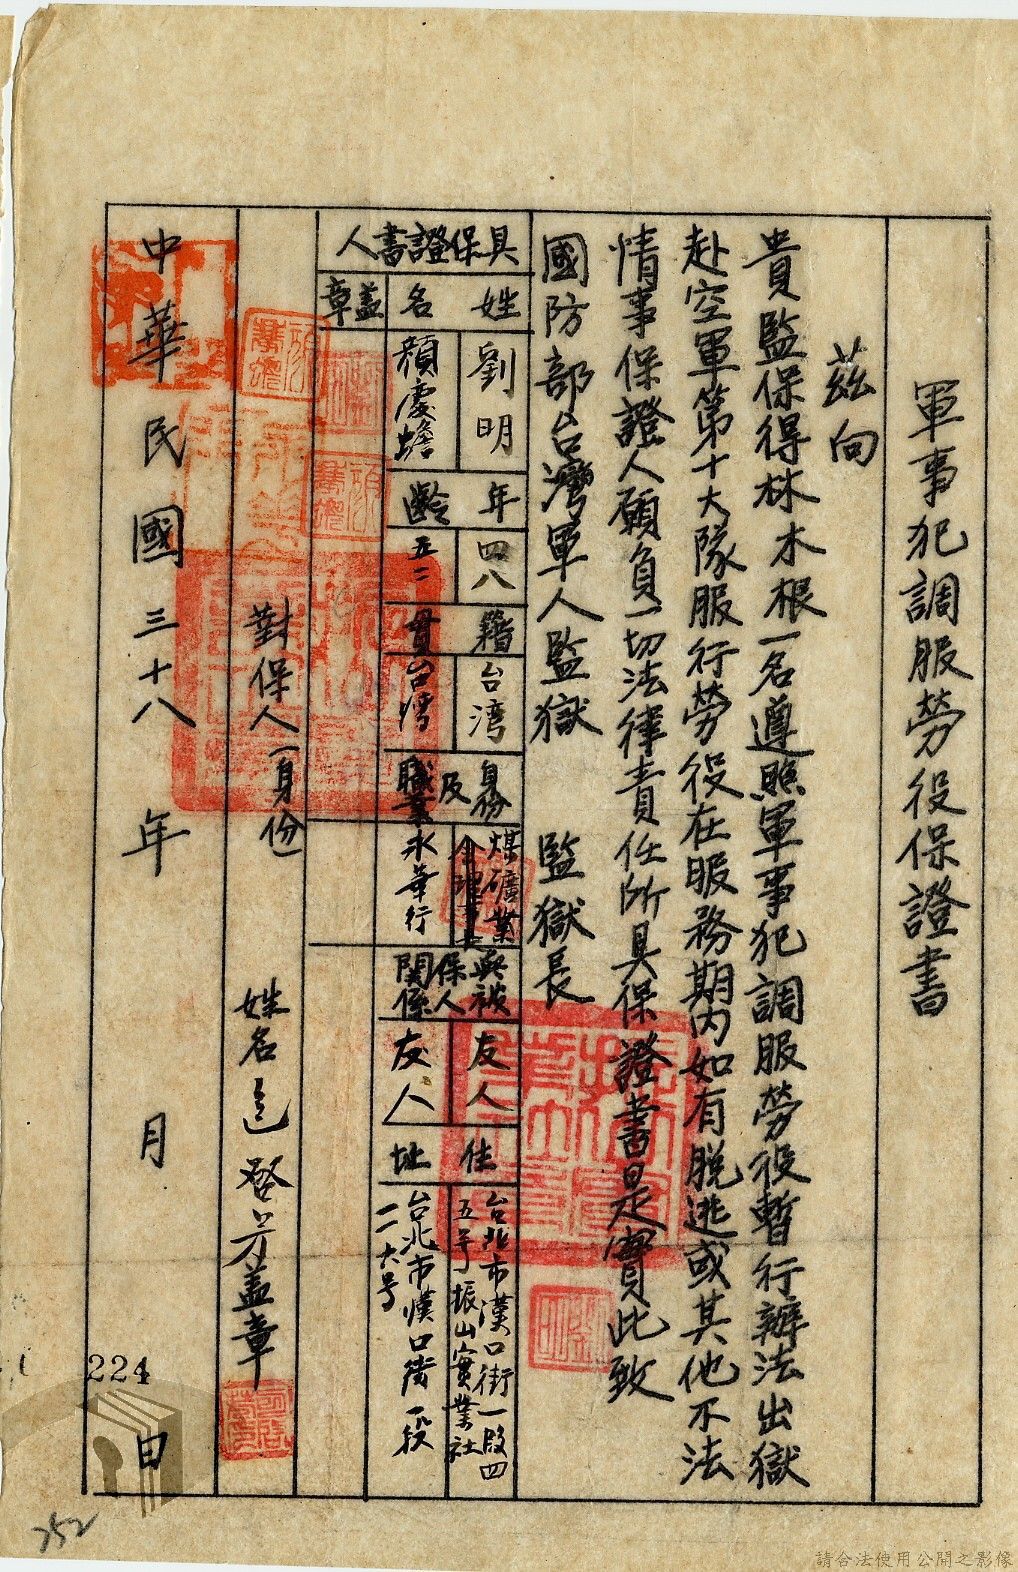 軍事犯調服勞役保證書
茲向
貴監保得林木根一名遵照軍事犯調服勞役暫行辦法出獄
赴空軍第十大隊服行勞役在服務期內如有脫逃或其他不法
情事保證人願負一切法律責任所具保證書是實此致
國防部台灣軍人監獄 監獄長
具保證書人
姓名 蓋章 年齡 籍貫 身份及職業 與被保人關係 住址
劉明 四八 台湾 煤礦業 友人 台北市漢口街一段四五号振山實業社
顏慶 五二 台湾 永華行 友人 台北市漢口街一段一一六号
對保人 身份 姓名 啓芳 蓋章
中華民國三十八年 月 日
224
252
請合法使用公開之影像